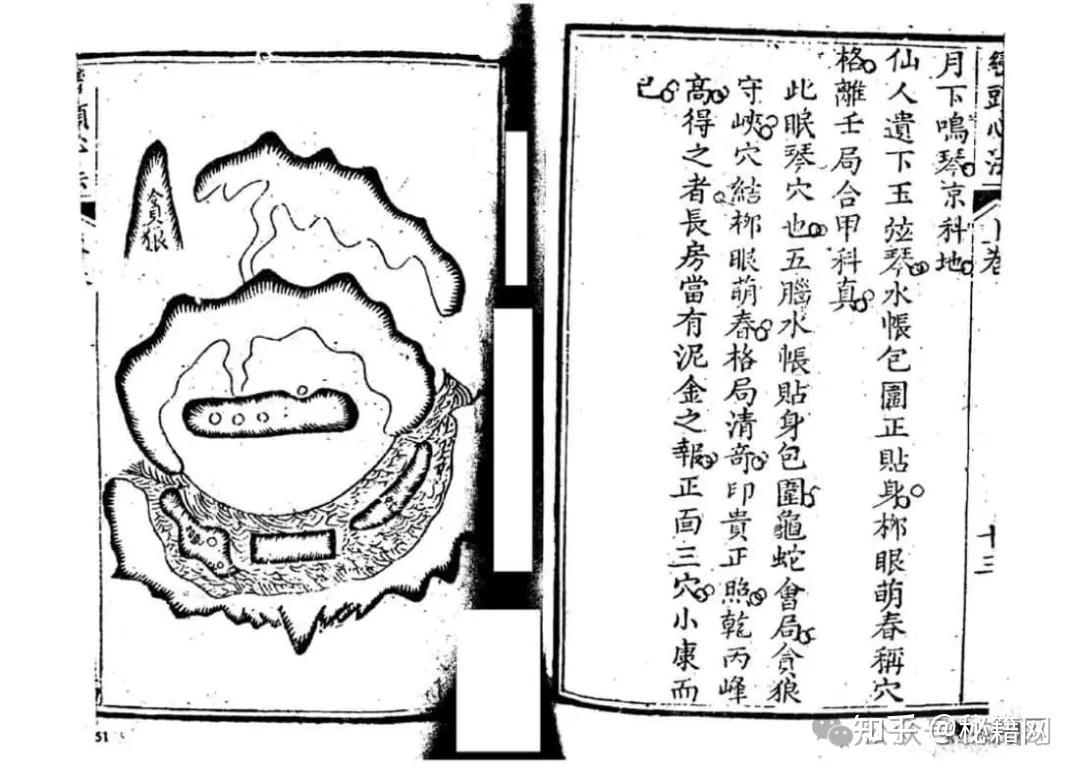 巒頭心法
上卷
十三
月下鳴琴京科地
仙人遺下玉弦琴水帳包圍正貼身桺眼萌春稱穴
格離壬局合甲科真
此眠琴穴也五腦水帳貼身包圍龜蛇會局貪狼
守峽穴結桺眼萌春格局清奇印貴正照乾丙峰
高得之者長房當有泥金之報正面三穴小康而
已
貪狼
51
知乎 @秘籍网